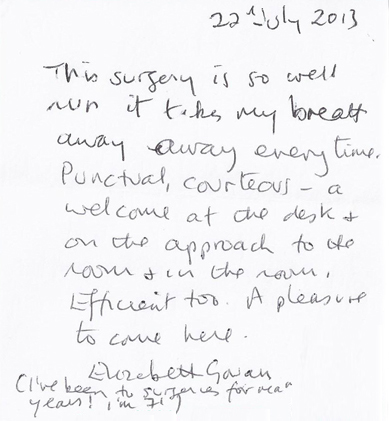 22nd July 2013
This surgery is so well
run it takes my breath
away away every time.
Punctual, courteous – a
welcome at the desk &
on the approach to the
room & in the room.
Efficient too. A pleasure
to come here.
Elizabeth
(I've been to surgeries for
years! I'm 71)